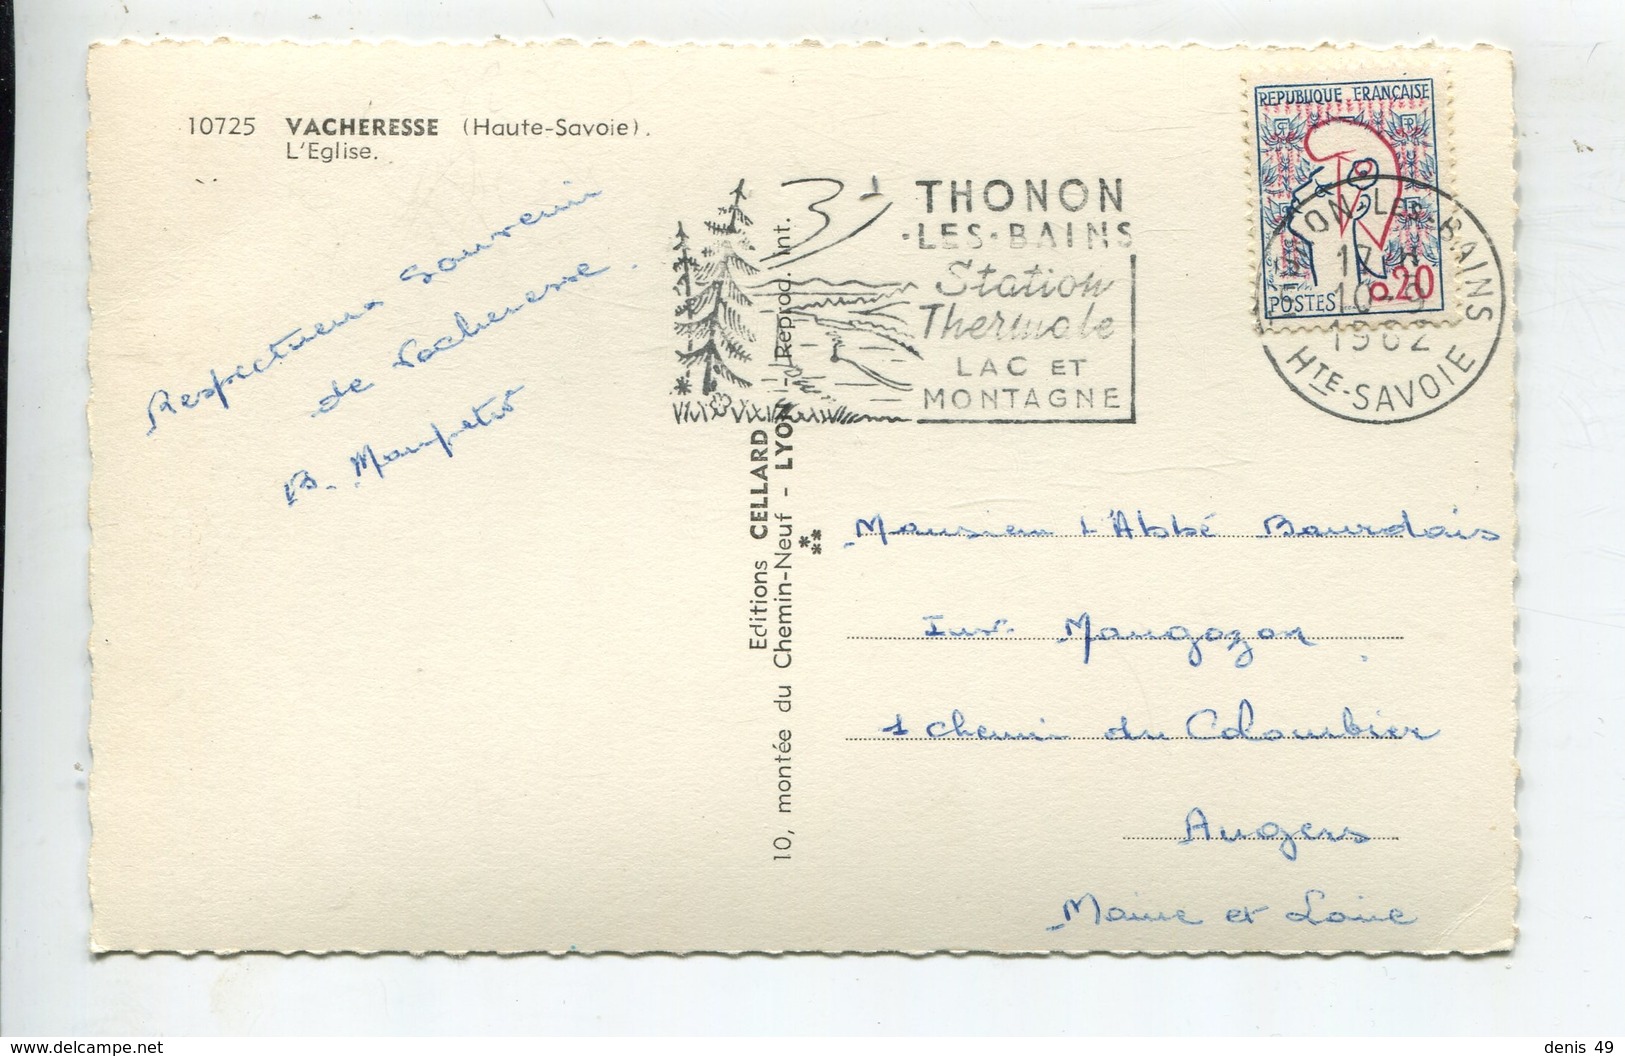 10725 VACHERESSE (Haute-Savoie).
L'Eglise.
Respectueux Souvenir
de Vacheresse.
B.
THONON
·LES·BAINS
Station
Thermale
LAC ET
MONTAGNE
REPUBLIQUE FRANÇAISE
POSTES 0,20
THONON-LES-BAINS
17 H
10-9
1962
HTE-SAVOIE
Editions CELLARD
10, montée du Chemin-Neuf - LYON - Reprod. Int.
Monsieur l'Abbé Bourdais
Inst. Mongazon
1 chemin du Colombier
Angers
Maine et Loire
www.delcampe.net
denis 49